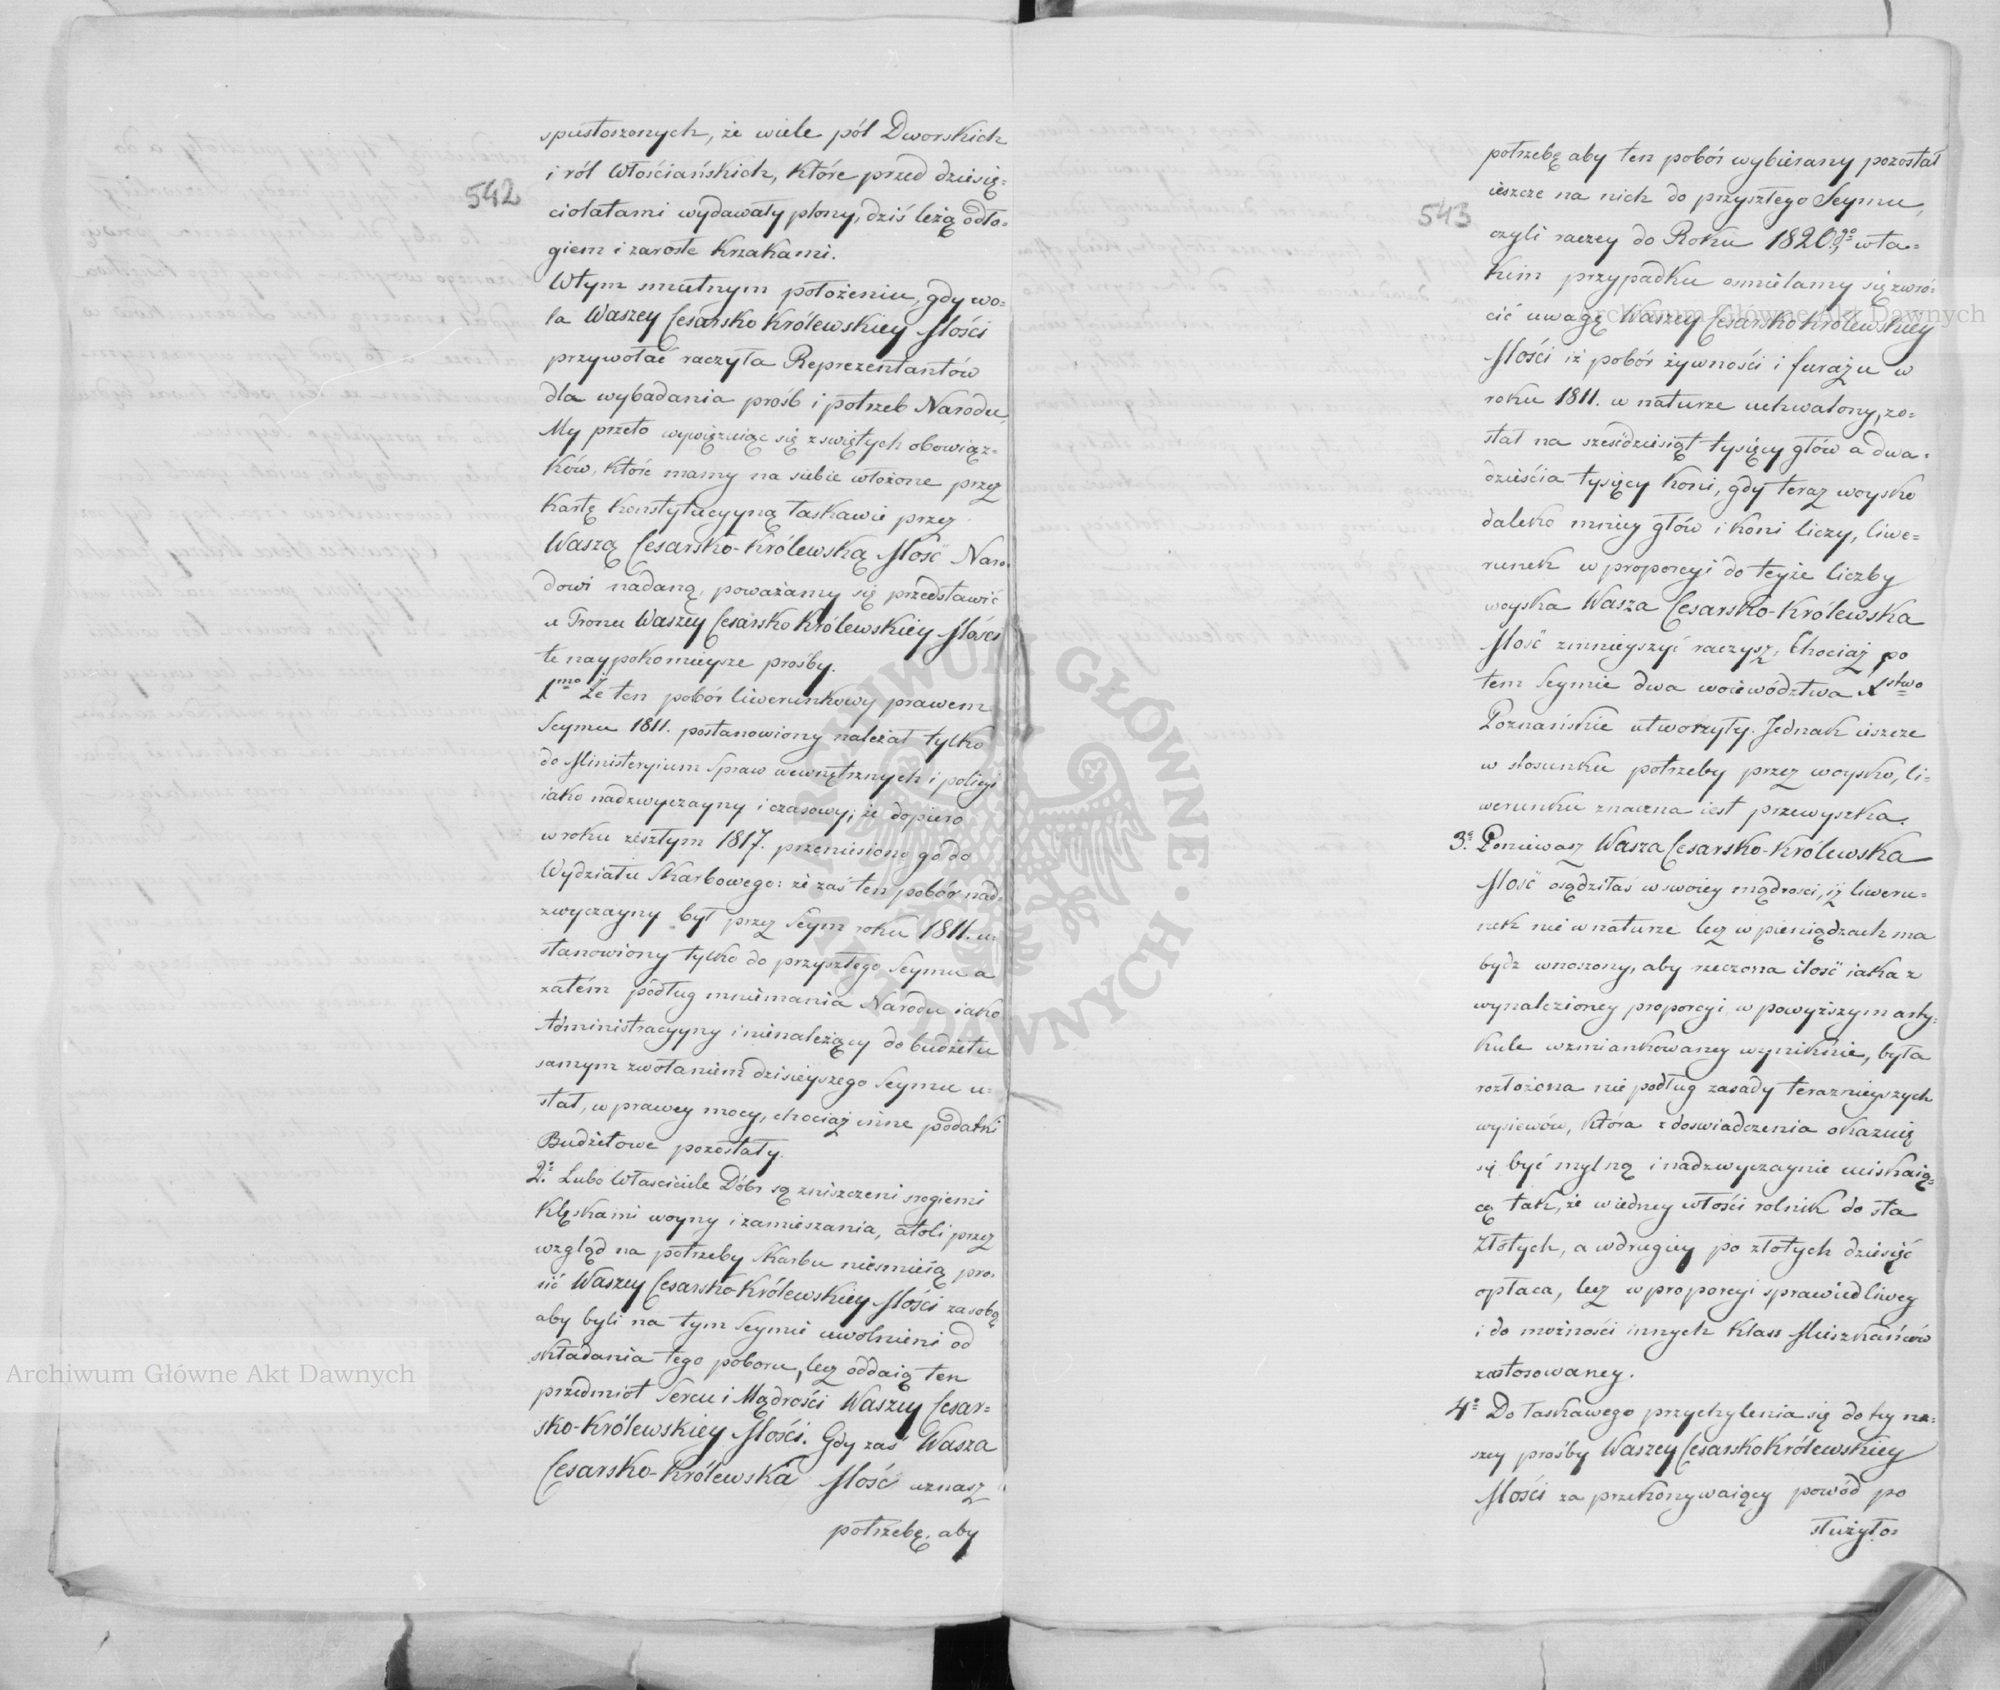 542
spustoszonych, że wiele pól Dworskich
i ról Włościańskich, które przed dziesię=
ciolatami wydawały plony, dziś leżą odło=
giem i zarosłe krzakami.
W tym smutnym położeniu, gdy wo=
la Waszey Cesarsko Królewskiey Mości
przywołać raczyła Reprezentantów
dla wybadania prośb i potrzeb Narodu,
My przeto wywięzuiąc się z swiętych obowiąz=
ków, które mamy na siebie włożone przez
Kartę Konstytucyyną łaskawie przez
Waszą Cesarsko-Królewską Mość Naro=
dowi nadaną, poważamy się przedstawić
u Tronu Waszey Cesarsko Królewskiey Mości
te naypokornieysze prośby.
1mo Że ten pobór liwerunkowy prawem
Seymu 1811. postanowiony należał tylko
do Ministeryium Spraw wewnętrznych i policyi
iako nadzwyczayny i czasowy; że dopiero
w roku zeszłym 1817. przeniesiono go do
Wydziału Skarbowego: że zaś ten pobór nad=
zwyczayny był przez Seym roku 1811. u=
stanowiony tylko do przyszłego Seymu a
zatém podług mniemania Narodu iako
Administracyyny i nienależący do budżetu
samym zwołaniem dzisieyszego Seymu u=
stał, w prawey mocy, chociaż inne podatki
Budżetowe pozostały.
2o. Lubo Właściciele Dóbr są zniszczeni srogiemi
klęskami woyny i zamieszania, atoli przez
wzgląd na potrzeby Skarbu nieśmieią pro=
sić Waszey Cesarsko Królewskiey Mości za sobą
aby byli na tym Seymie uwolnieni od
składania tego poboru, lecz oddaią ten
przedmiot Sercu i Mądrości Waszey Cesar=
sko-Królewskiey Mości. Gdy zaś Wasza
Cesarsko-Królewska Mość uznasz
potrzebę, aby
543
potrzebę aby ten pobór wybierany pozostał
ieszcze na nich do przyszłego Seymu,
czyli raczey do Roku 1820go w ta=
kim przypadku ośmielamy się zwró=
cić uwagę Waszey Cesarsko Królewskiey
Mości iż pobór żywności i furażu w
roku 1811. w naturze uchwalony, zo=
stał na sześćdziesiąt tysięcy głów a dwa=
dzieścia tysięcy koni, gdy teraz woysko
daleko mniey głów i koni liczy, liwe=
runek w proporcyi do teyże liczby
woyska Wasza Cesarsko-Królewska
Mość zmnieyszyć raczysz, Chociaż po
tem Seymie dwa woiewództwa Xstwo
Poznańskie utworzyły. Jednak ieszcze
w stosunku potrzeby przez woysko, li=
werunku znaczna iest przewyszka.
3o. Ponieważ Wasza Cesarsko-Królewska
Mość osądziłaś w swoiey mądrości, iż liweru=
nek nie w naturze lecz w pieniądzach ma
bydz wnoszony, aby rzeczona ilość iaka z
wynalezioney proporcyi, w powyższym arty=
kule wzmiankowaney wyniknie, była
rozłożona nie podług zasady teraznieyszych
wysiewów, która z doswiadczenia okazuię
się być mylną i nadzwyczaynie uciskaią=
cą tak, że w iedney włości rolnik do sta
złotych, a w drugiey po złotych dziesięć
opłaca, lecz w proporcyi sprawiedliwey
i do możności innych klass Mieszkańców
zastosowaney.
4o Do łaskawego przychylenia się do tey na=
szey prośby Waszey Cesarsko Królewskiey
Mości za przekonywaiący powód po
służyło=
Archiwum Główne Akt Dawnych
Archiwum Główne Akt Dawnych
ARCHIWUM GŁÓWNE AKT DAWNYCH